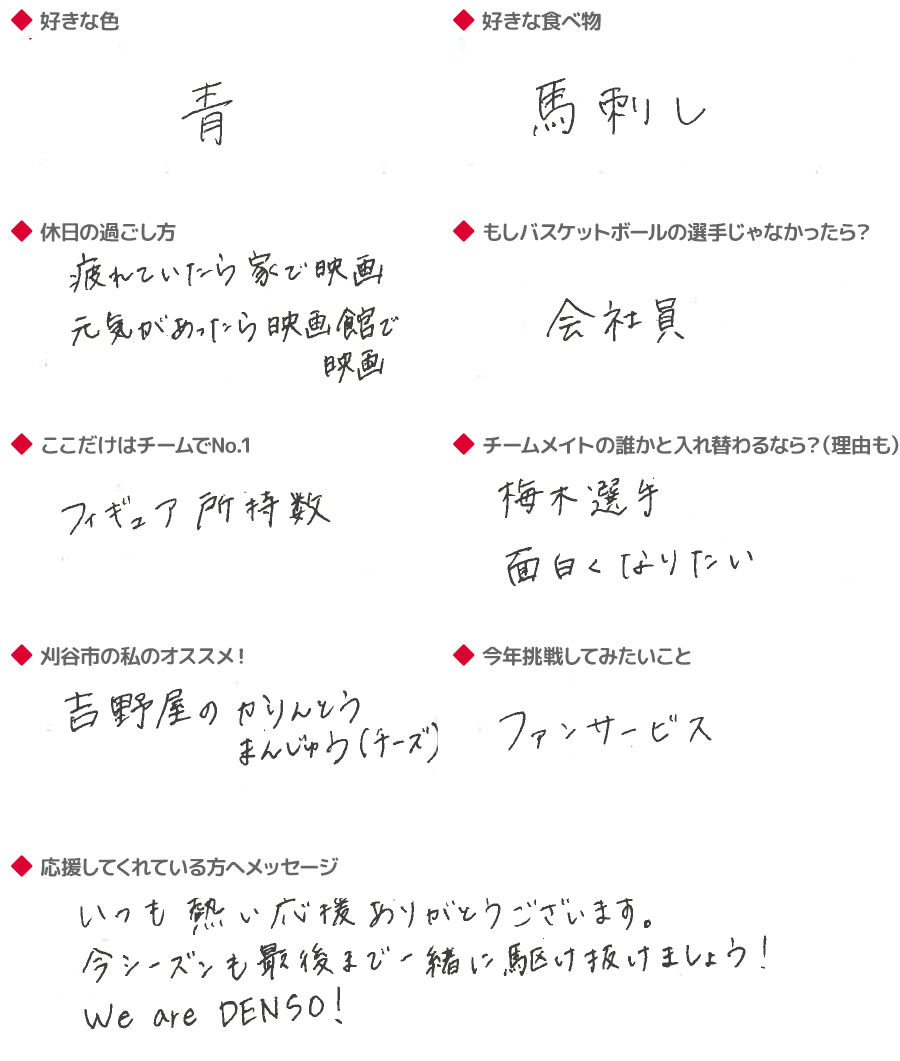 好きな色
青
好きな食べ物
馬刺し
休日の過ごし方
疲れていたら家で映画
元気があったら映画館で
映画
もしバスケットボールの選手じゃなかったら?
会社員
ここだけはチームでNo.1
フィギュア所持数
チームメイトの誰かと入れ替わるなら?(理由も)
梅木選手
面白くなりたい
刈谷市の私のオススメ!
吉野屋のかりんとう
まんじゅう(チーズ)
今年挑戦してみたいこと
ファンサービス
応援してくれている方へメッセージ
いつも熱い応援ありがとうございます。
今シーズンも最後まで一緒に駆け抜けましょう!
We are DENSO!